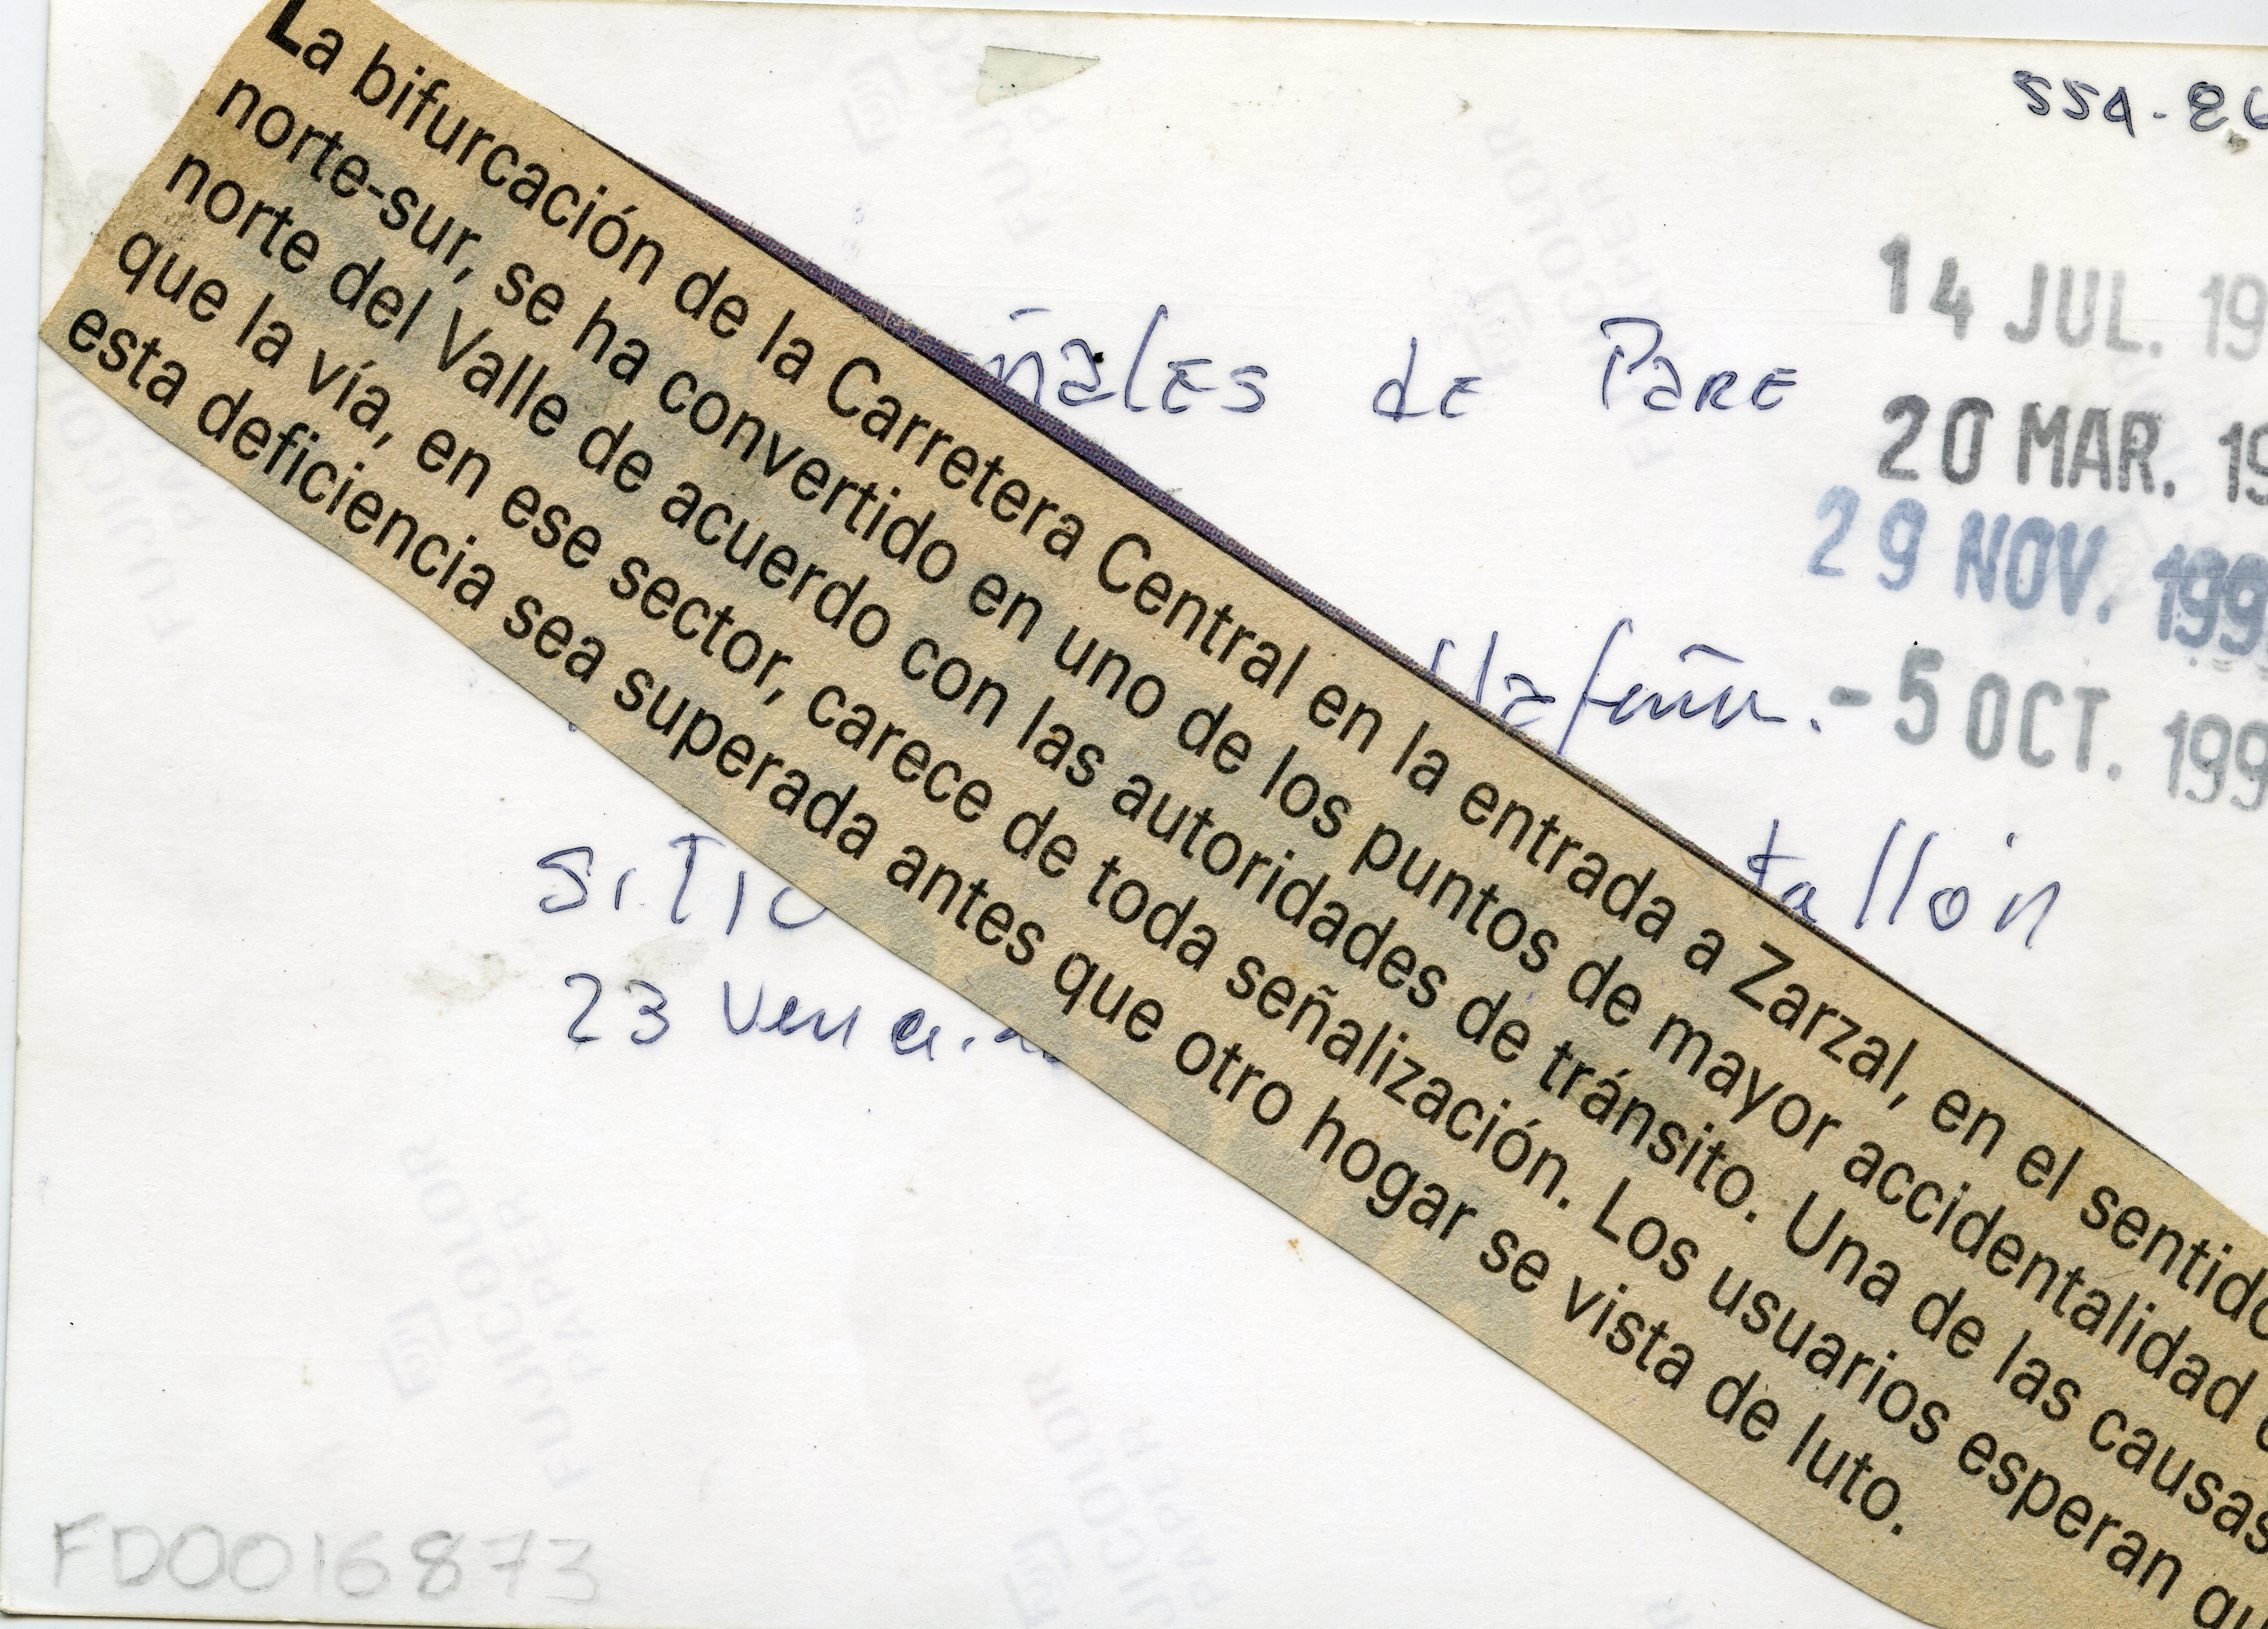 SSA-26
14 JUL. 19
20 MAR. 19
29 NOV. 199
-5 OCT. 199
ñales de Pare
tallón
La bifurcación de la Carretera Central en la entrada a Zarzal, en el sentido
norte-sur, se ha convertido en uno de los puntos de mayor accidentalidad
norte del Valle de acuerdo con las autoridades de tránsito. Una de las causas
que la vía, en ese sector, carece de toda señalización. Los usuarios esperan qu
esta deficiencia sea superada antes que otro hogar se vista de luto.
Sitio
23
FUJICOLOR
PAPER
FD0016873